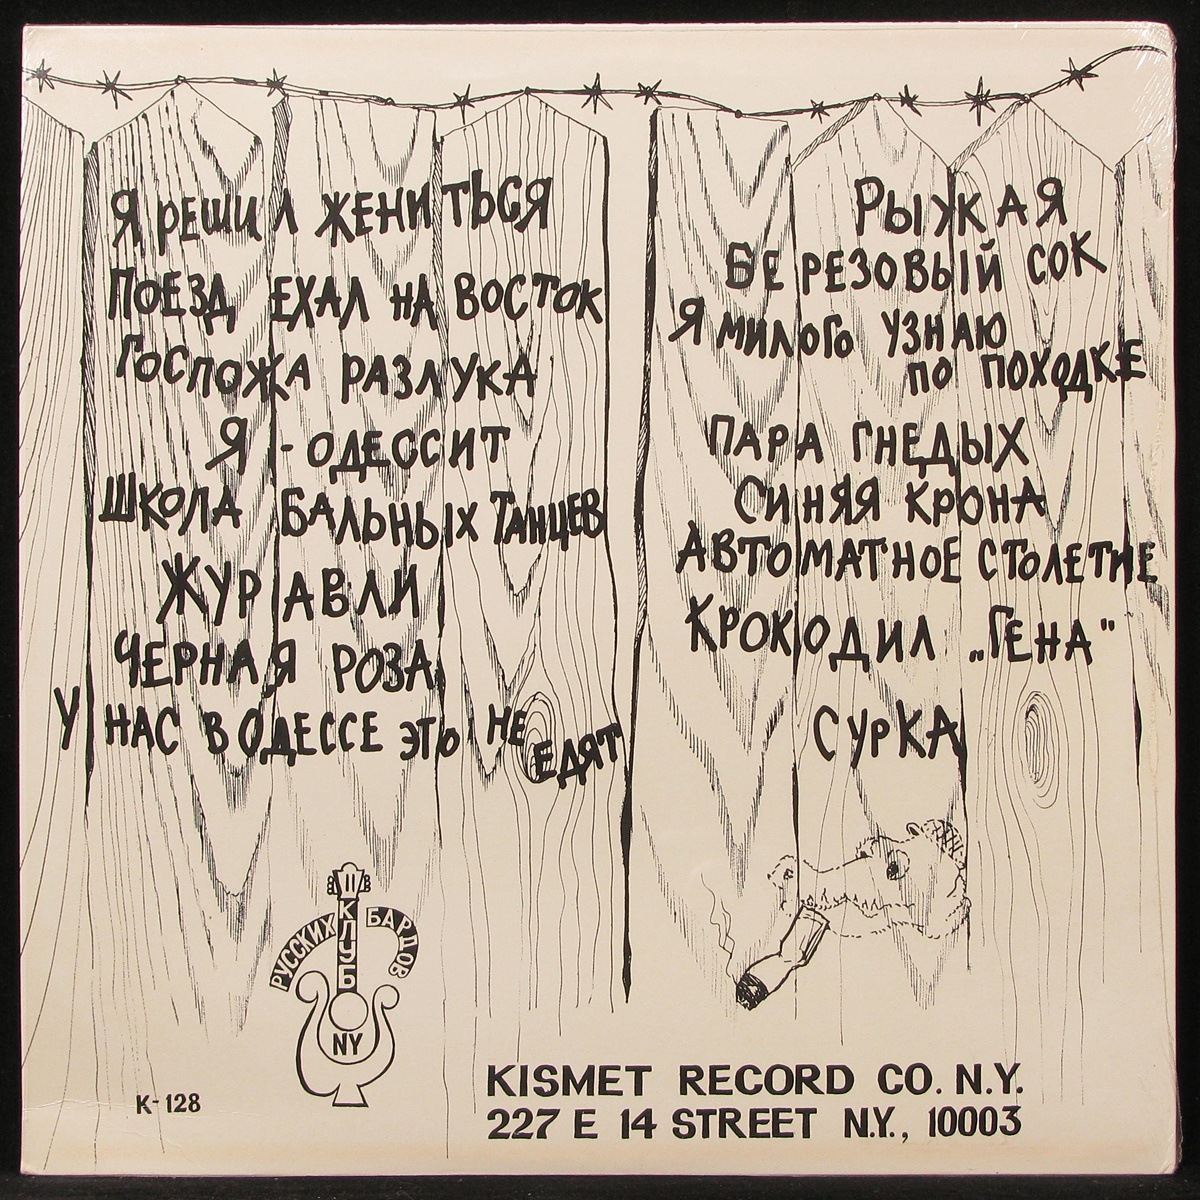 Я РЕШИЛ ЖЕНИТЬСЯ
ПОЕЗД ЕХАЛ НА ВОСТОК
ГОСПОЖА РАЗЛУКА
Я - ОДЕССИТ
ШКОЛА БАЛЬНЫХ ТАНЦЕВ
ЖУРАВЛИ
ЧЕРНАЯ РОЗА
У НАС В ОДЕССЕ ЭТО НЕ
ЕДЯТ
РЫЖАЯ
БЕРЕЗОВЫЙ СОК
Я МИЛОГО УЗНАЮ
ПО ПОХОДКЕ
ПАРА ГНЕДЫХ
СИНЯЯ КРОНА
АВТОМАТНОЕ СТОЛЕТИЕ
КРОКОДИЛ „ГЕНА"
СУРКА
КЛУБ
РУССКИХ БАРДОВ
NY
K-128
KISMET RECORD CO. N.Y.
227 E 14 STREET N.Y., 10003